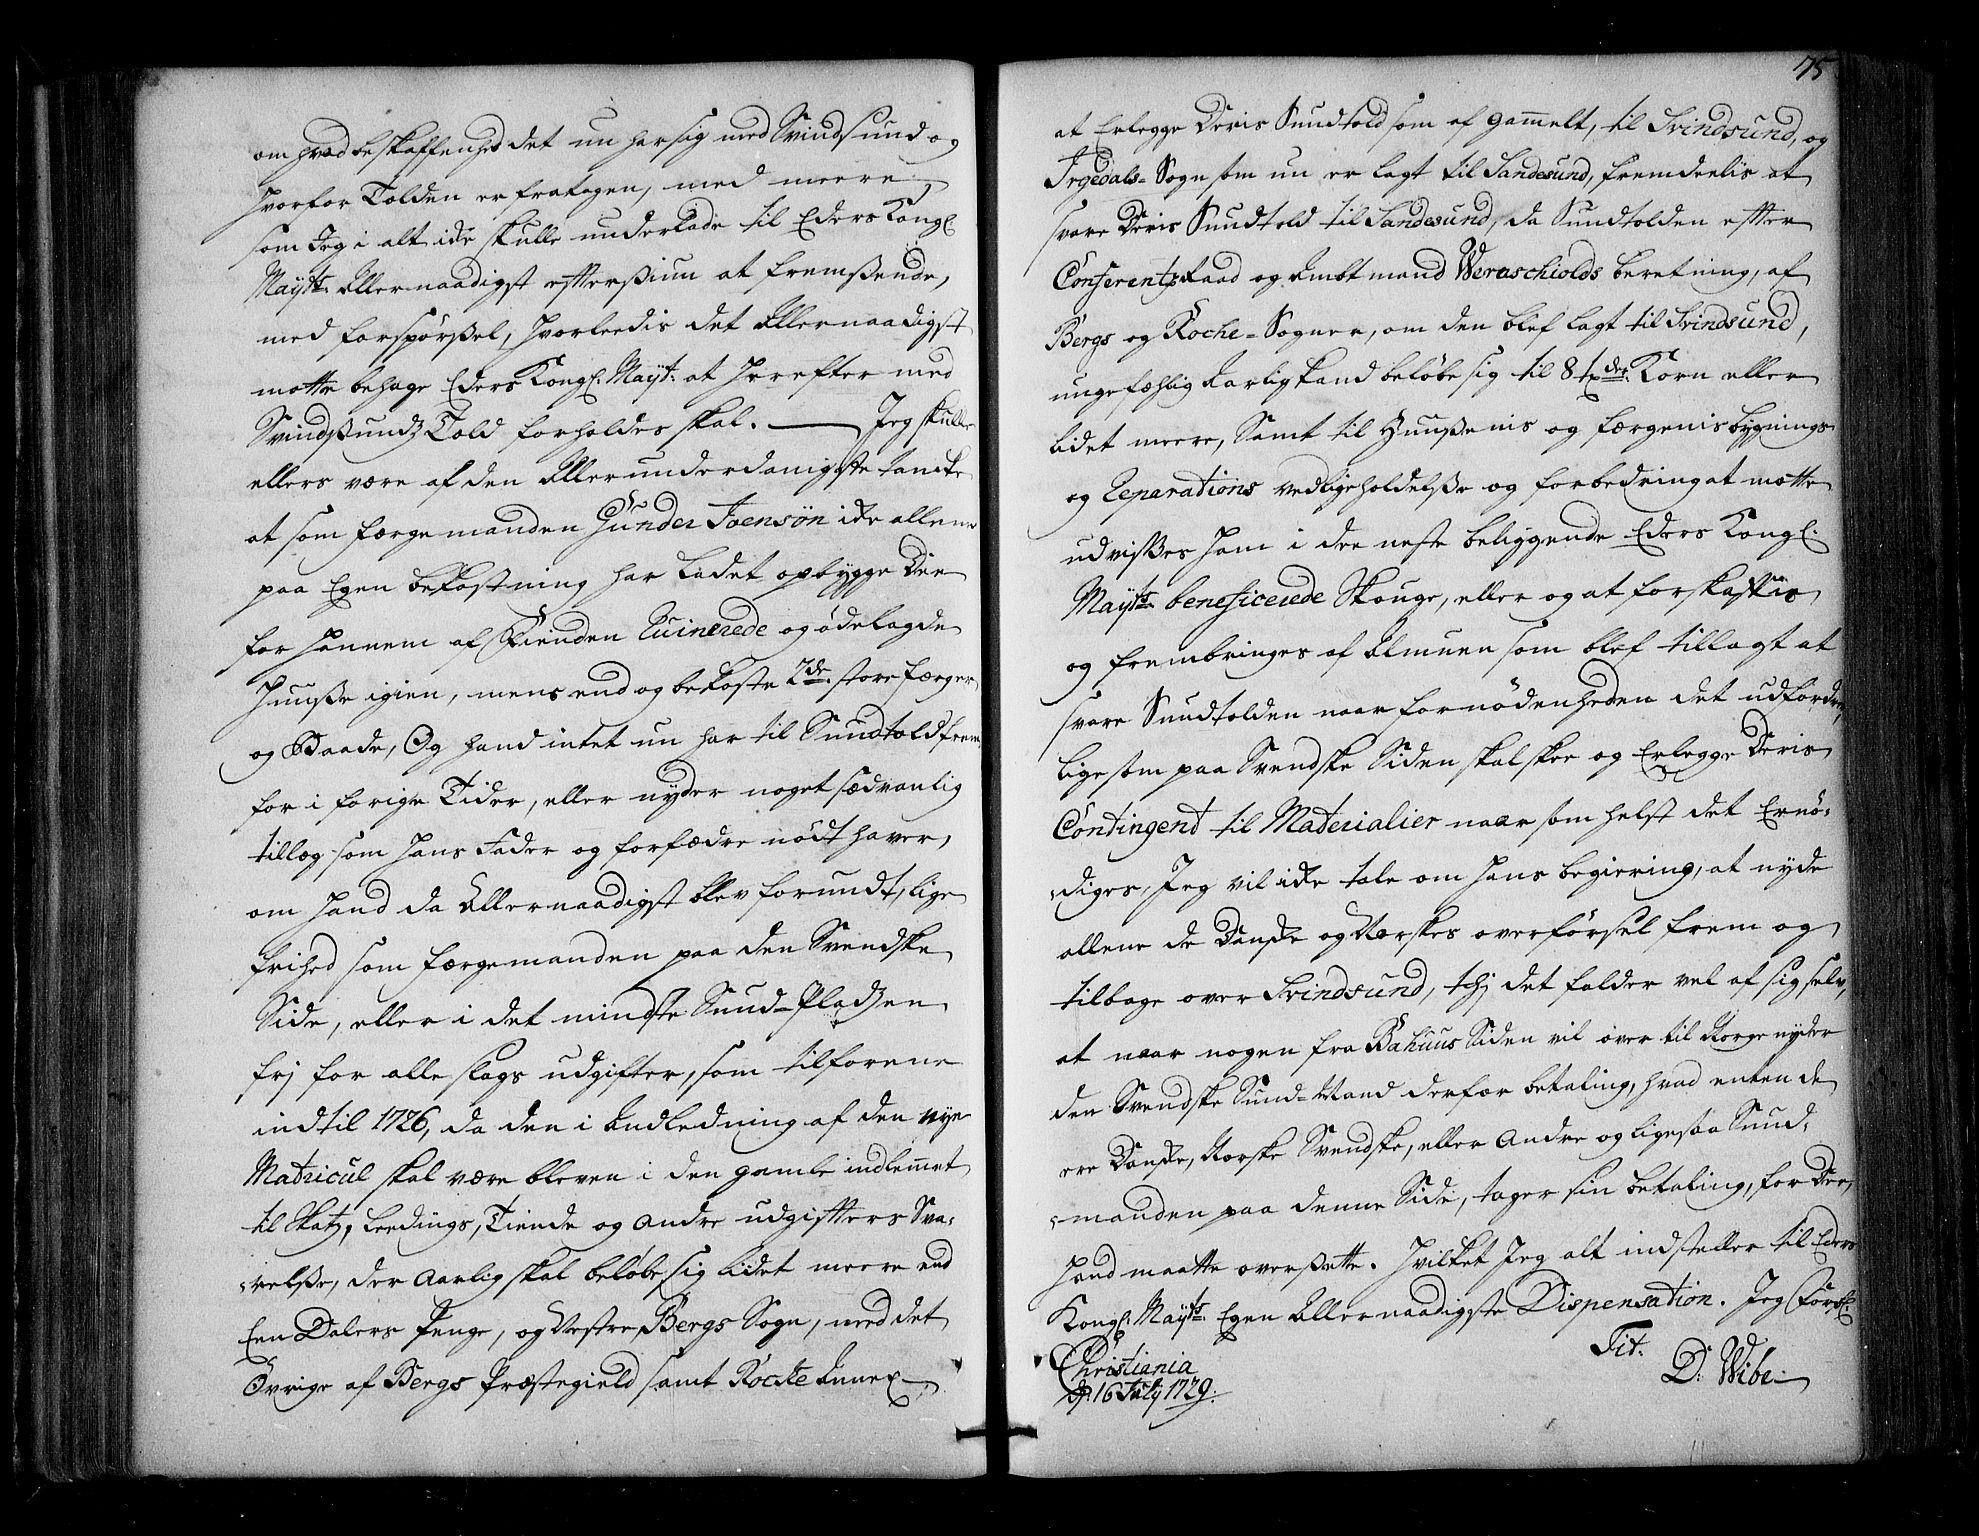 om hvad beskaffenhed det nu har sig med Svindsund og
hvorfor Tolden er fratagen, med meere,
som Jeg i alt icke skulle underlade til Eders Kongl:
Mayts: Allernaadigst efftersiun at fremsende,
med forspörsel, hvorleedis det Allernaadigst
motte behage Eders Kongl: Mayt: at herefter med
Svindssundz Told forholdes skal. — Jeg skulle
ellers være af den Allerunderdanigste tancke
at som færgemanden Gunder Joensön icke allene
paa Egen bekostning har ladet opbygge Dee
for hannem af Fienden Ruinerede og ödelagde
Huusse igien, mens end og bekoste 2de store færger
og Baade, Og hand intet nu har til Sundtold frem-
for i forige Tider, eller nyder noget sædvanlig
tillæg som hans Fader og forfædre nödt haver,
om hand da Allernaadigst blev forundt, lige
frihed som færgemanden paa den Svendske
Side, eller i det mindste Sund-Pladzen
frj for alle slags udgifter, som tilforene
indtil 1726, da den i Anledning af den nye
Matricul skal være bleven i den gamle indlemet
til Skatz, Leedings, Tiende og andre udgifters Sva-
-relsse, der Aarlig skal belöbe sig lidet meere end
Een Dalers Penge, og Vestre Bergs Sogn, med det
Övrige af Bergs Præstegield samt Rocke Annex
75
at Erlegge Deris Sundtold som af gamelt, til Svindsund, og
Jrgedals-Sogn som nu er lagt til Sandesund, fremdeelis at
svare Deris Sundtold til Sandesund, da Sundtolden effter
Conferentz Raad og Ambtmand Weraschiolds beretning, af
Bergs og Rocke-Sogner, om den blef lagt til Svindsund,
ungefæhlig Aarlig kand belöbe sig til 8 tder: Korn eller
lidet meere, Samt til Huussenis og færgenis bygnings
og Reparations vedligeholdelsse og forbedring at motte
udvisses ham i dee neste beliggende Eders Kongl:
Mayts: beneficerede Skouge, eller og at forskaffis
og frembringes af Almuen som blef tillagt at
svare Sundtolden naar fornödenheden det udfordrer,
ligesom paa Svendske Siden skal skee og Erlegge Deris
Contingent til Materialier naar som helst det Ernö-
-diges, Jeg vil icke tale om hans begiering, at nyde
allene de Danske og Norskes overförsel frem og
tilbage over Svindsund, thj det falder vel af sig selv,
at naar nogen fra Bahuus Siden vil över til Norge nyder
den Svendske Sund-Mand derfor betaling, hvad enten de
ere Danske, Norske Svendske, eller andre og ligesaa Sund-
-manden paa denne Side, tager sin betaling, for Dee,
hand maatte oversette. Hvilket Jeg alt indsteller til Eders
Kongl: Mayts: Egen Allernaadigste Dispensation. Jeg Forbl:
Tit:
Christiania
D: Wibe
d: 16 July 1729.